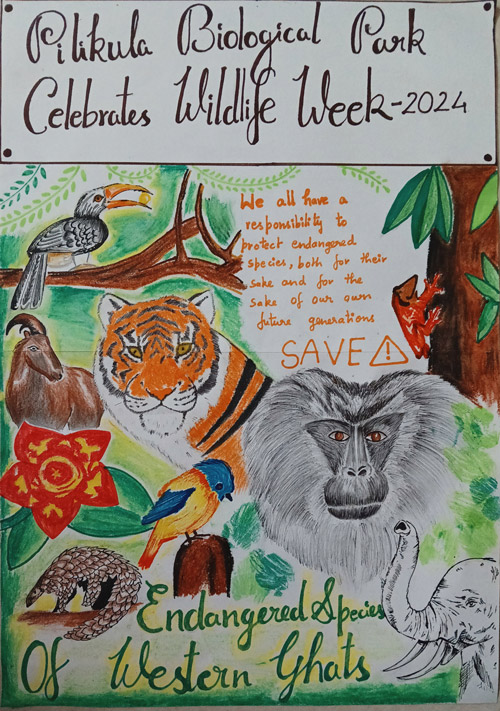 Pilikula Biological Park
Celebrates Wildlife Week-2024
We all have a
responsibility to
protect endangered
species, both for their
sake and for the
sake of our own
future generations
SAVE
Endangered Species
Of Western Ghats